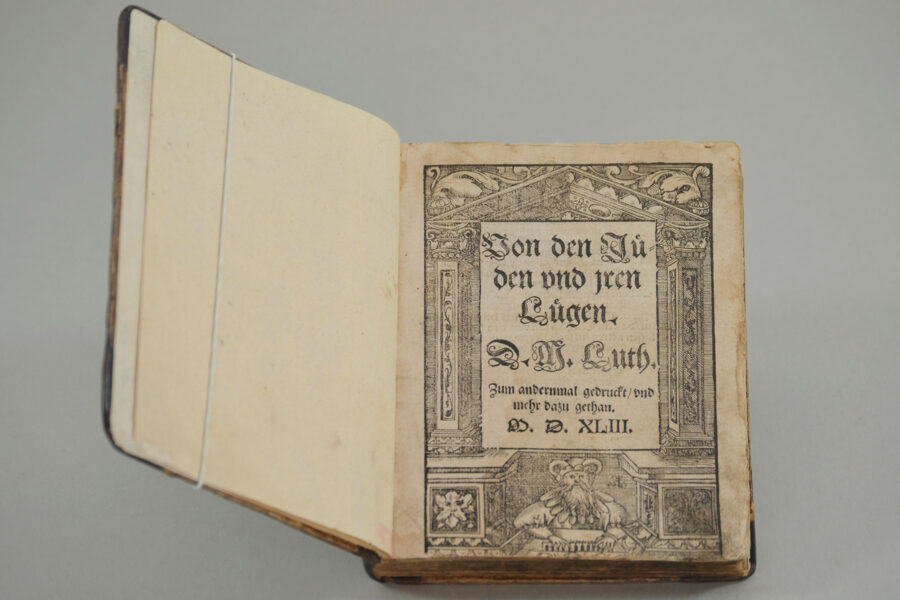 Von den Jü-
den vnd jren
Lügen.
D. M. Luth.
Zum andernmal gedruckt/ vnd
mehr dazu gethan.
M. D. XLIII.